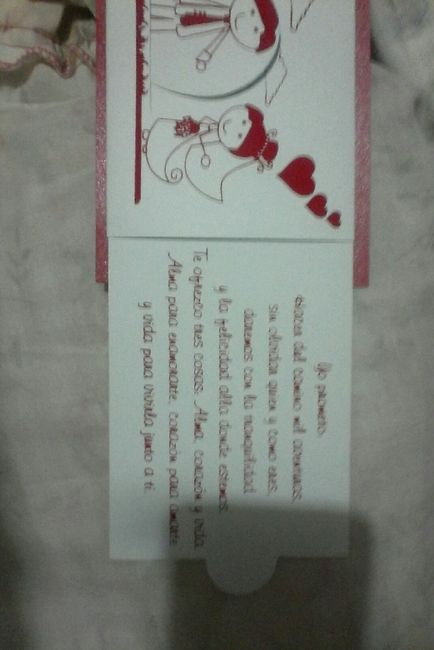 Yo prometo:
Hacer del camino mil aventuras,
sin olvidar quien y como eres,
daremos con la tranquilidad
y la felicidad alla donde estemos.
Te ofrezco tres cosas: Alma, corazón y vida.
Alma para enamorarte, corazón para amarte
y vida para vivirla junto a ti.